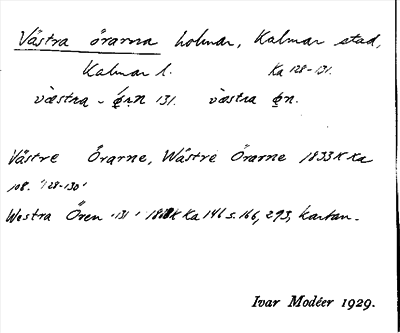 Västra örarna holmar, Kalmar stad,
Kalmar l. Ka 128-131.
væ̀stra - ǿṛn 131. væ̀stra ø̣n.
Västre Örarne, Wästre Örarne 1833 K Ka
108. '128-130'
Westra Ören '131' K Ka 146 s. 166, 293, kartan.
Ivar Modéer 1929.